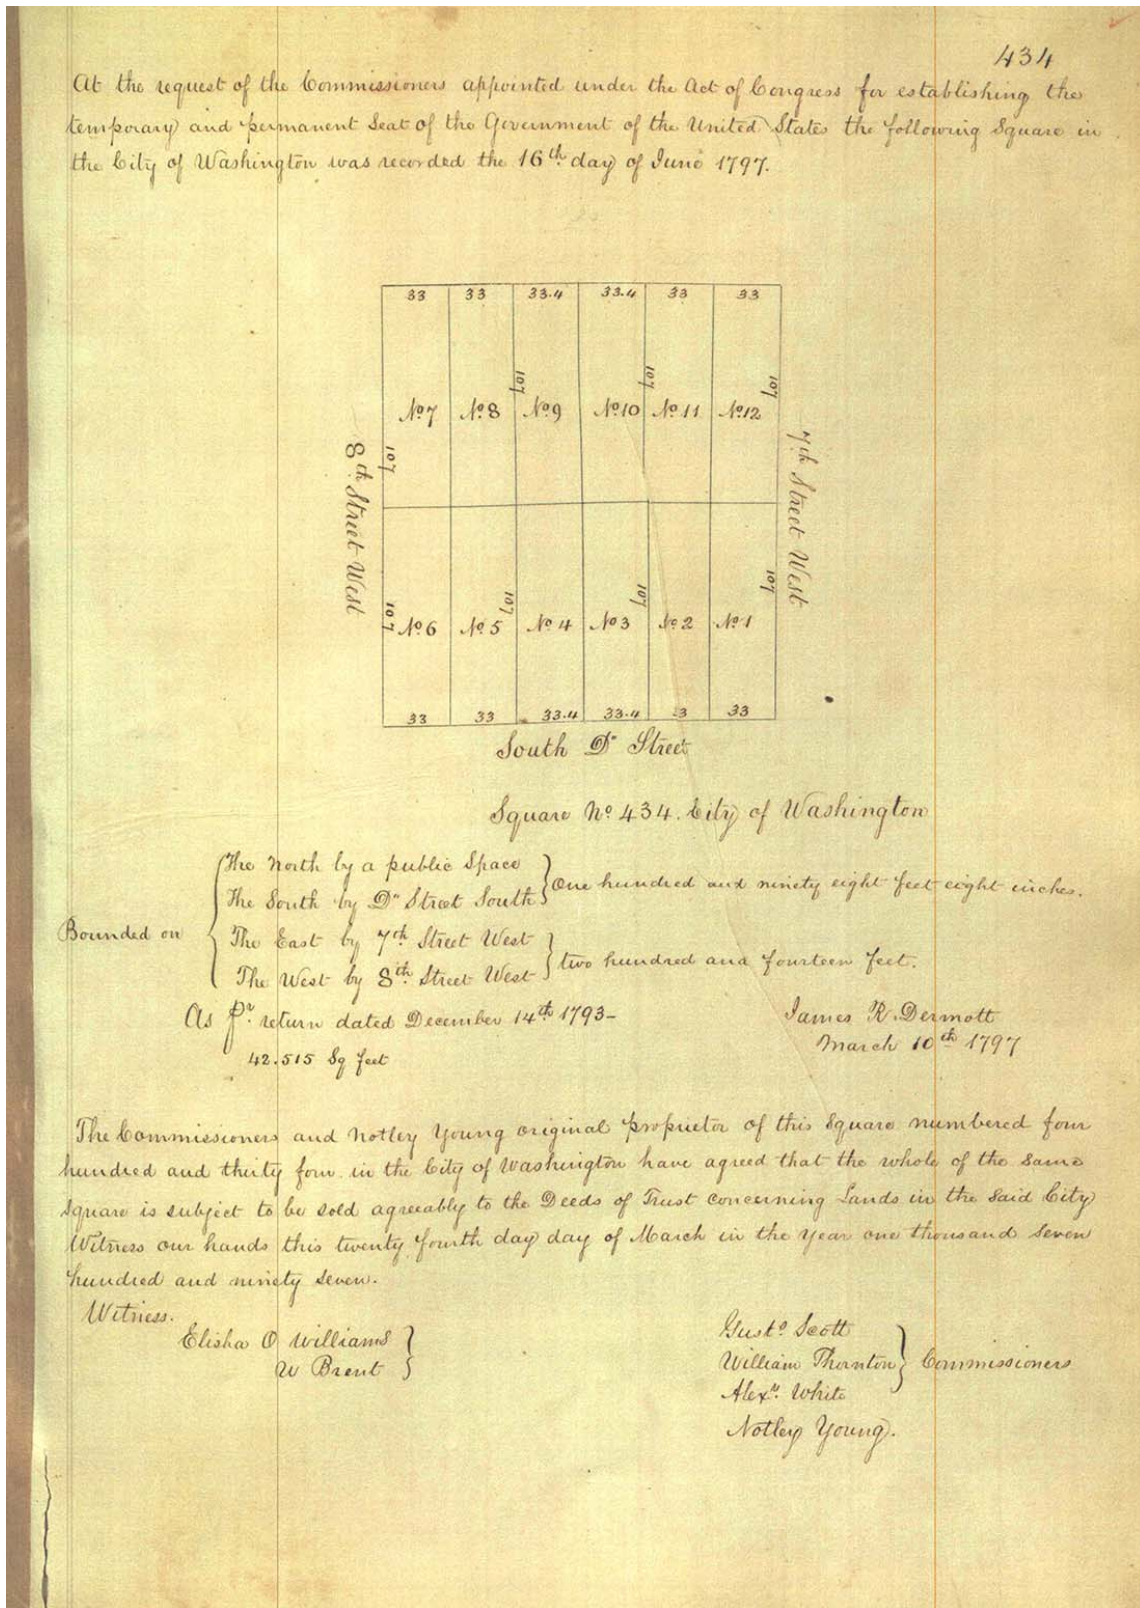 434
At the request of the Commissioners appointed under the Act of Congress for establishing the
temporary and permanent Seat of the Government of the United States the following Square in
the City of Washington was recorded the 16th day of June 1797.
33 33 33.4 33.4 33 33
107 107 107
No 7 No 8 No 9 No 10 No 11 No 12
107
8th Street West
7th Street West
107 107 107 107
No 6 No 5 No 4 No 3 No 2 No 1
33 33 33.4 33.4 3 33
South D Street
Square No 434. City of Washington
The North by a public Space
The South by D Street South
One hundred and ninety eight feet eight inches.
Bounded on
The East by 7th Street West
The West by 8th Street West
two hundred and fourteen feet.
As Pr return dated December 14th 1793-
James R. Dermott
March 10th 1797
42.515 Sq feet
The Commissioners and Notley Young original proprietor of this Square numbered four
hundred and thirty four in the City of Washington have agreed that the whole of the same
Square is subject to be sold agreeably to the Deeds of Trust concerning Lands in the Said City
Witness our hands this twenty fourth day day of March in the year one thousand Seven
hundred and ninety Seven.
Witness.
Elisha O Williams
W Brent
Gusto Scott
William Thornton
Commissioners
Alexr White
Notley Young.